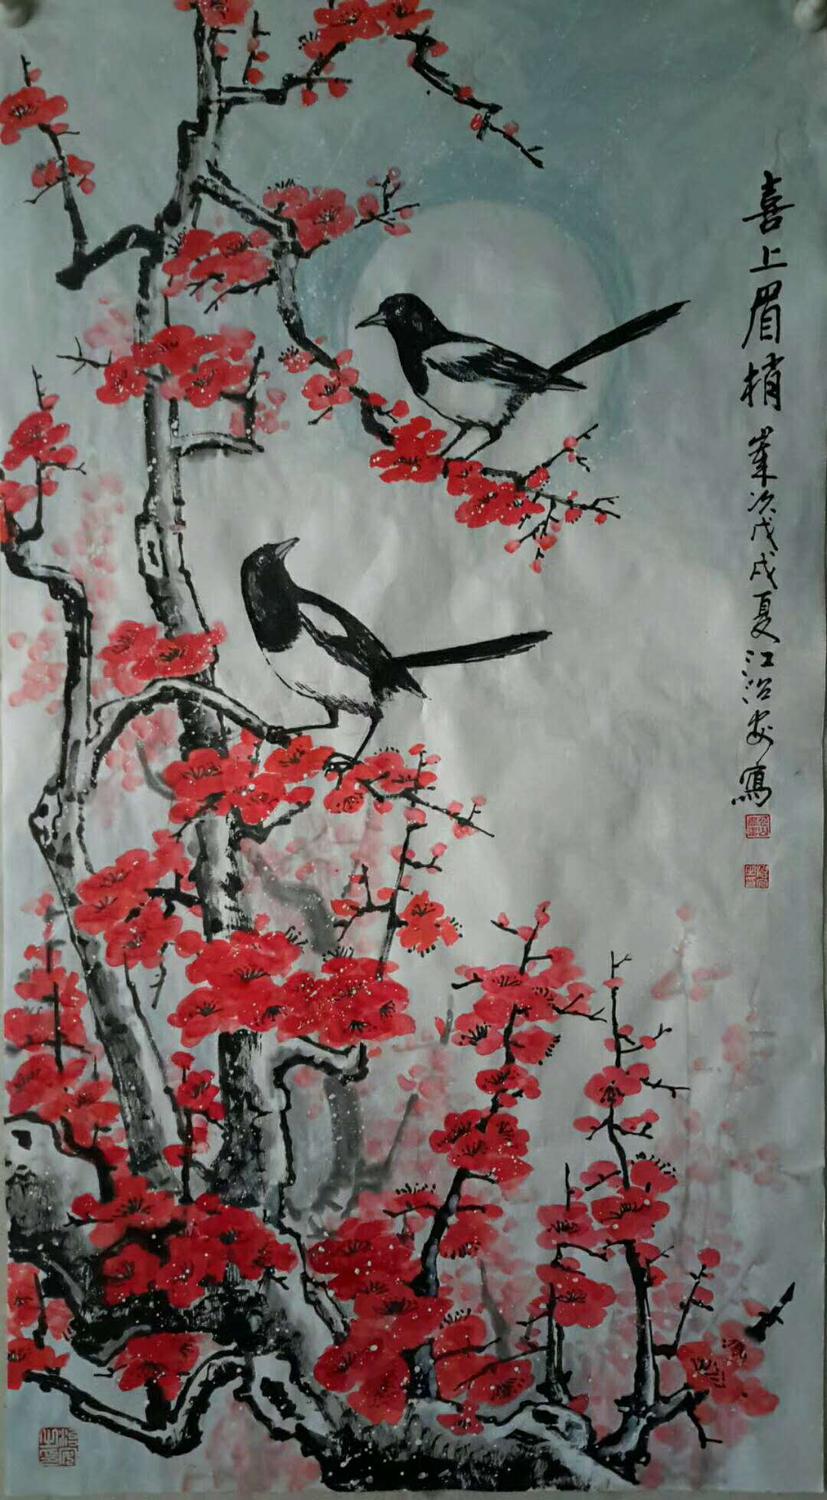 喜上眉梢 岁次戊戌夏江治安寫